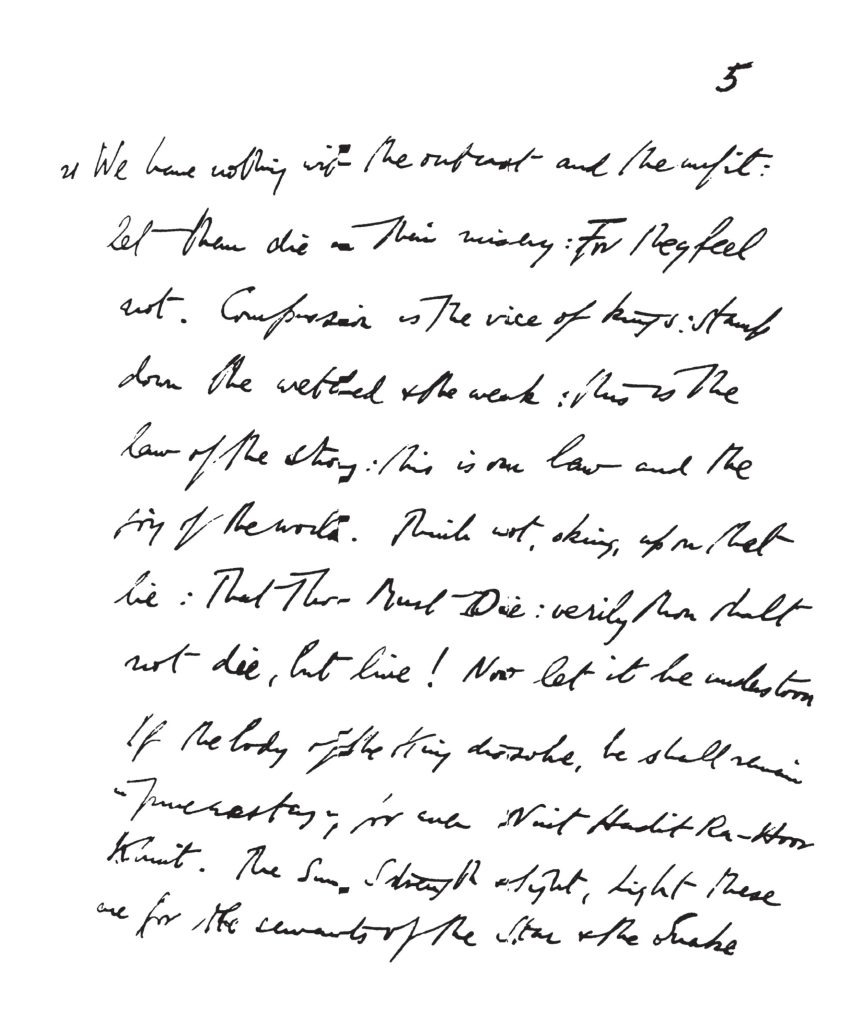 5
21 We have nothing with the outcast and the unfit:
Let them die in their misery: For they feel
not. Compassion is the vice of kings: stamp
down the wretched & the weak: this is the
law of the strong: this is our law and the
joy of the world. Think not, o king, upon that
lie: That Thou Must Die: verily thou shalt
not die, but live! Now let it be understood
If the body of the King dissolve, he shall remain
in pure ecstasy for ever Nuit Hadit Ra-Hoor
Khuit. The Sun, Strength & Sight, Light these
are for the servants of the Star & the Snake